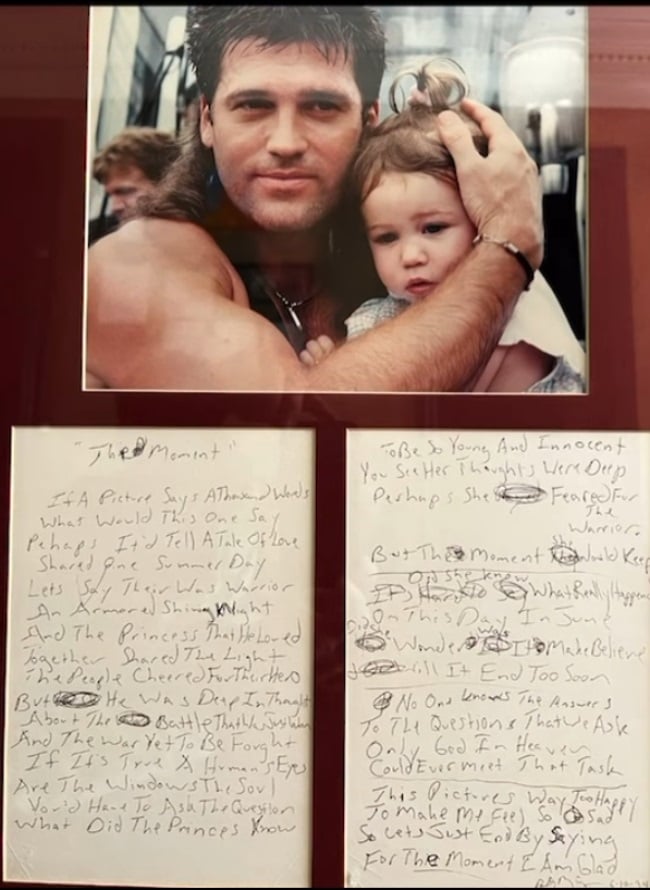 "The Moment"
If A Picture Says A Thousand Words
What Would This One Say
Pehaps It'd Tell A Tale Of Love
Shared One Summer Day
Lets Say Their Was Warrior
An Armored Shinning Knight
And The Princess That He Loved
Together Shared The Light
The People Cheered For Their Hero
But He Was Deep In Thought
About The Battle That He Just
And The War Yet To Be Forght
If It's True A Human's Eyes
Are The Windows The Soul
You'd Have To Ask The Question
What Did The Princes Know
To Be So Young And Innocent
You See Her Thoughts Were Deep
Perhaps She Feared For
The
Warrior.
But The Moment She Would Keep
Did She Know
It's Hard To What Really Happen
On This Day In June
Did She Wonder Was It Make Believe
Will It End Too Soon
No One Knows The Answers
To The Questions That We Ask
Only God In Heaven
Could Ever Meet That Task
This Pictures Way Too Happy
To Make Me Feel So Sad
So Lets Just End By Saying
For The Moment I Am Glad